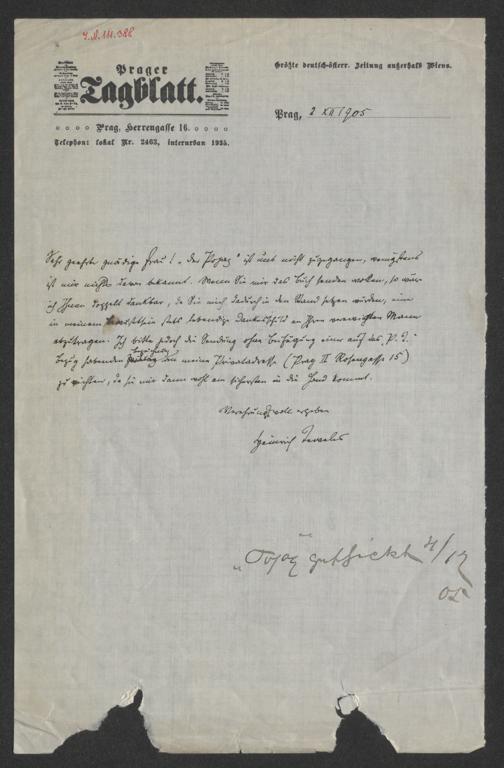 J.N. 111.388
Prager
Tagblatt.
Größte deutsch-österr. Zeitung außerhalb Wiens.
Prag, Herrengasse 16.
Telephon: lokal Nr. 2463, interurban 1935.
Prag, 2 XII 1905
Sehr geehrte gnädige Frau! „Der Popaz" ist uns nicht zugegangen, wenigstens
ist mir nichts davon bekannt. Wenn Sie mir das Buch senden wollen, so wäre
ich Ihnen doppelt dankbar, da Sie mich dadurch in den Stand setzen würden, eine
in meinem stets lebendige Dankesschuld an Ihren verewigten Mann
abzutragen. Ich bitte jedoch die Sendung ohne Beifügung eine auf das P. T.
Bezug habenden an meine Privatadresse (Prag II Rosengasse 15)
zu richten, da sie mir dann wohl am sichersten in die Hand kommt.
Verehrungsvoll ergeben
Heinrich Teweles
geschickt 4/12
05